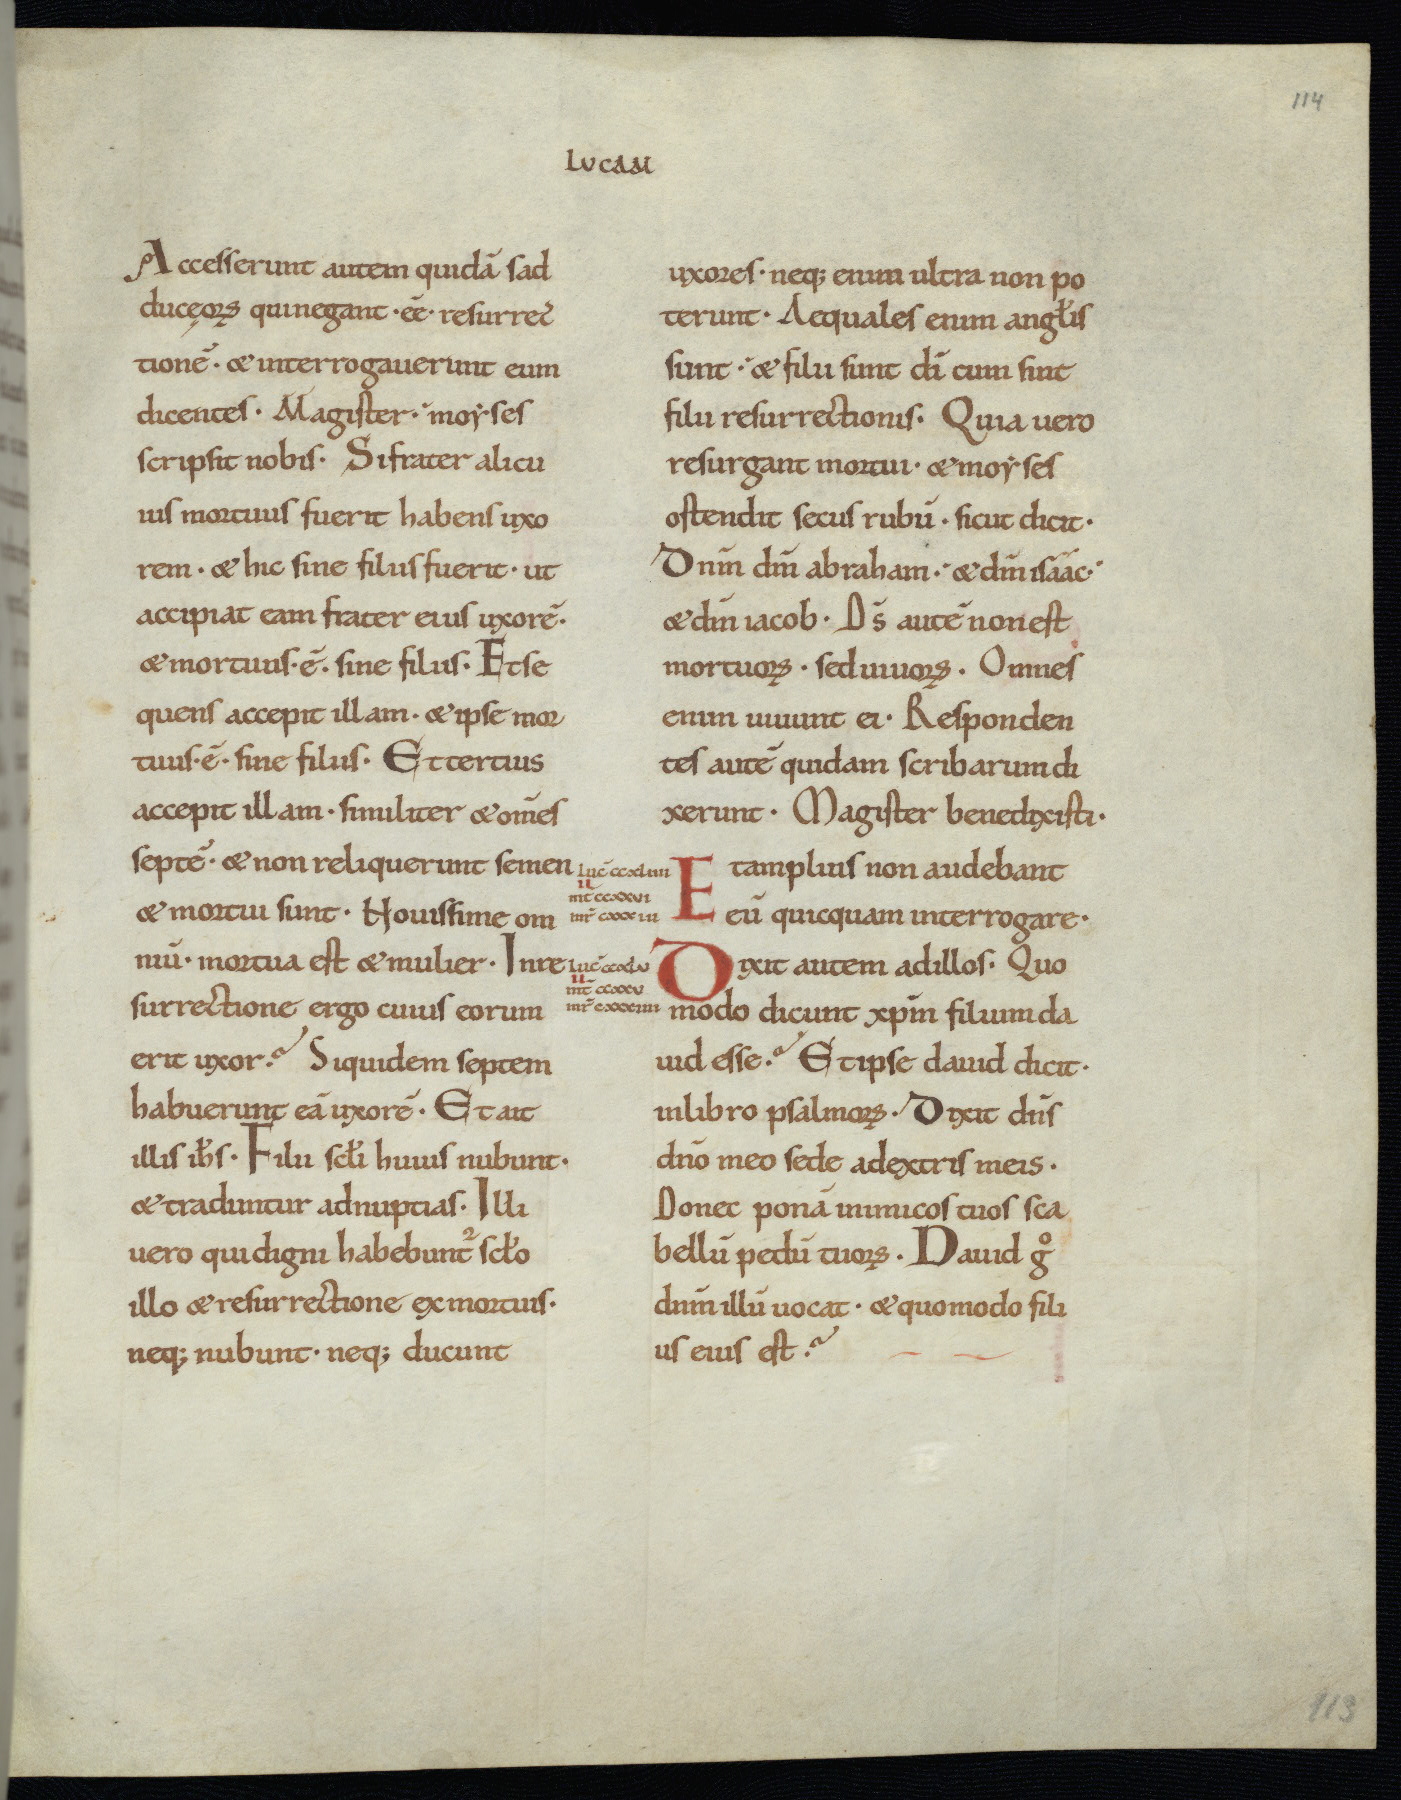 114
LUCAM
Accesserunt autem quidā sad
ducęoꝝ qui negant · eē · resurrec̄
tionē · & interrogauerunt eum
dicentes · Magister · moẏses
scripsit nobis · Si frater alicu
ius mortuus fuerit habens uxo
rem · & hic sine filiis fuerit · ut
accipiat eam frater eius uxorē ·
& mortuus · ē · sine filiis · Et se
quens accepit illam · & ipse mor
tuus · ē · sine filiis · Et tertius
accepit illam · similiter & om̄es
septē · & non reliquerunt semen
& mortui sunt · Nouissime om
niū · mortua est & mulier · In re
surrectione ergo cuius eorum
erit uxor ? Siquidem septem
habuerunt eā uxorē · Et ait
illis ih̄s · Filii scl̄i huius nubunt ·
& traduntur ad nuptias · Illi
uero qui digni habebunt᷑ scl̄o
illo & resurrectione ex mortuis ·
neq; nubunt · neq; ducunt
uxores · neq; enim ultra non po
terunt · Aequales enim angl̄is
sunt · & filii sunt dī cum sint
filii resurrectionis · Quia uero
resurgant mortui · & moẏses
ostendit secus rubū · sicut dicit ·
Dn̄m dm̄ abraham · & dm̄ isááć ·
& dm̄ iacob · Ds̄ autē non est
mortuoꝝ · sed uiuoꝝ · Omnes
enim uiuunt ei · Responden
tes autē quidam scribarum di
xerunt · Magister bene dixisti ·
luc̄ ccxliiii
ii
mt̄ ccxxvi
mr̄ cxxxiii
Et amplius non audebant
eū quicquam interrogare ·
luc̄ ccxlv
ii
mt̄ ccxxv
mr̄ cxxxiiii
Dixit autem ad illos · Quo
modo dicunt xp̄m filium da
uid esse ? Et ipse dauid dicit ·
in libro psalmoꝝ · Dixit dn̄s
dn̄o meo sede a dextris meis ·
Donec ponā inimicos tuos sca
bellū pedū tuoꝝ · Dauid g̊
dn̄m illū uocat · & quomodo fili
us eius est ?
113